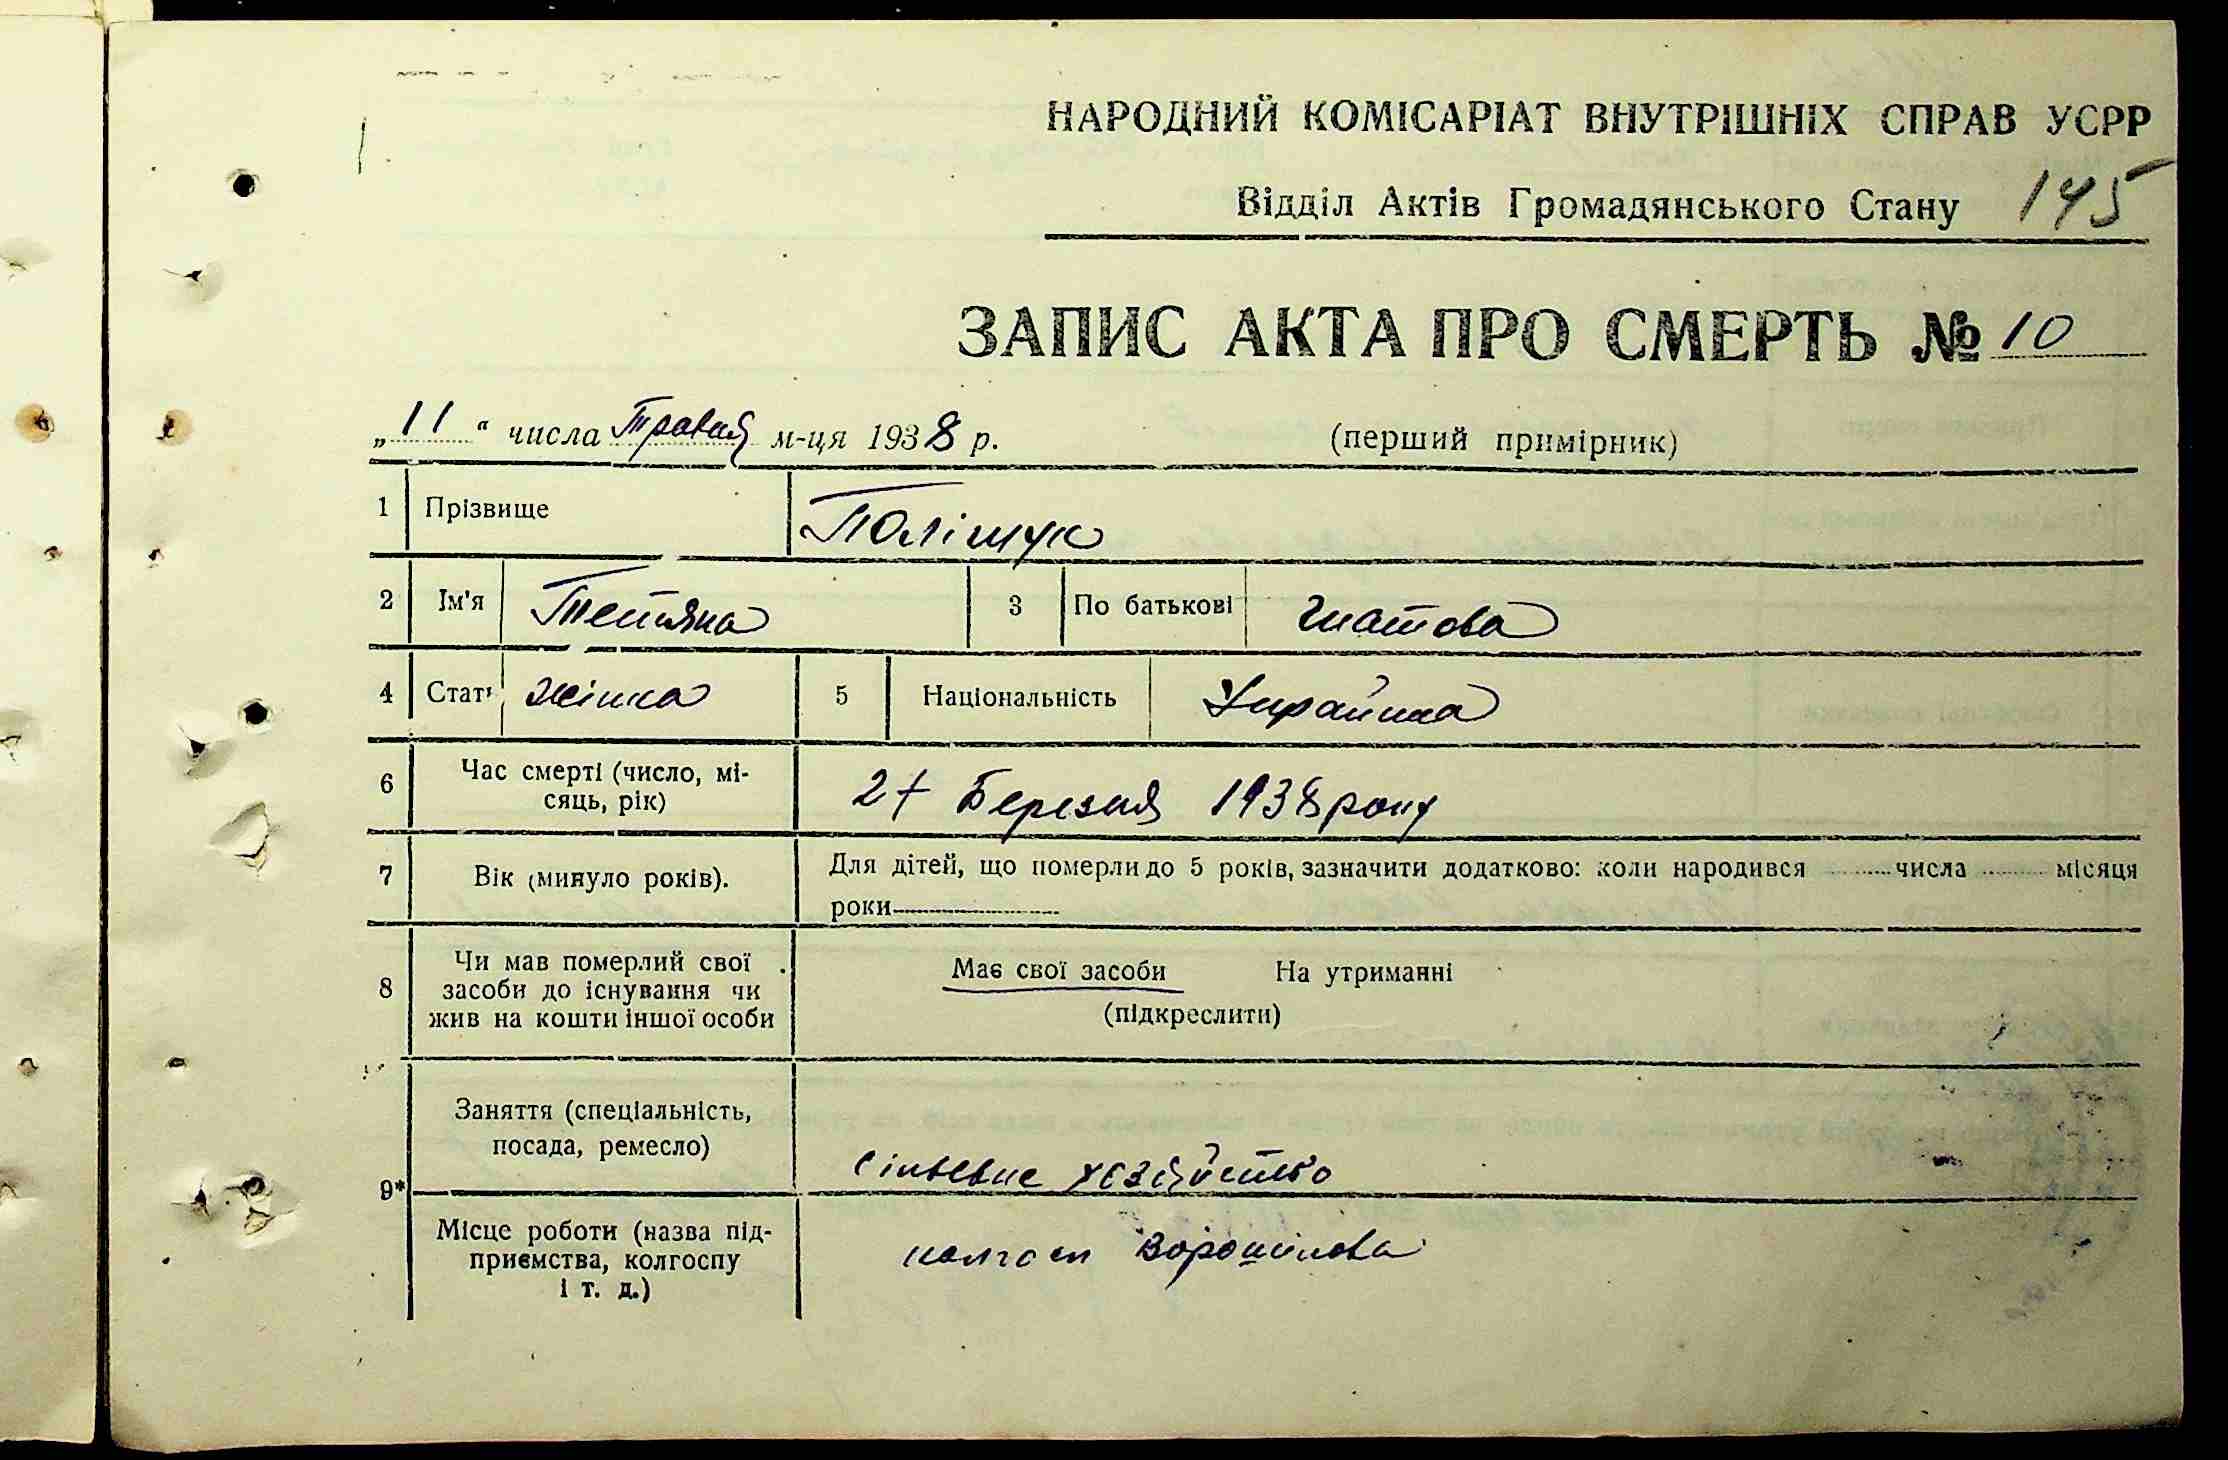 НАРОДНИЙ КОМІСАРІАТ ВНУТРІШНІХ СПРАВ УСРР
Відділ Актів Громадянського Стану 145
ЗАПИС АКТА ПРО СМЕРТЬ № 10
„11“ числа Травня м-ця 1938 р. (перший примірник)
1 Прізвище Поліщук
2 Ім'я Тетяна 3 По батькові Гнатова
4 Стать жінка 5 Національність Українка
6 Час смерті (число, мі-
сяць, рік) 27 Березня 1938 року
7 Вік (минуло років). Для дітей, що померли до 5 років, зазначити додатково: коли народився числа місяця
роки
8 Чи мав померлий свої
засоби до існування чи
жив на кошти іншої особи
Має свої засоби На утриманні
(підкреслити)
9* Заняття (спеціальність,
посада, ремесло) сільське
Місце роботи (назва під-
приємства, колгоспу
і т. д.)
колгосп Ворошилова